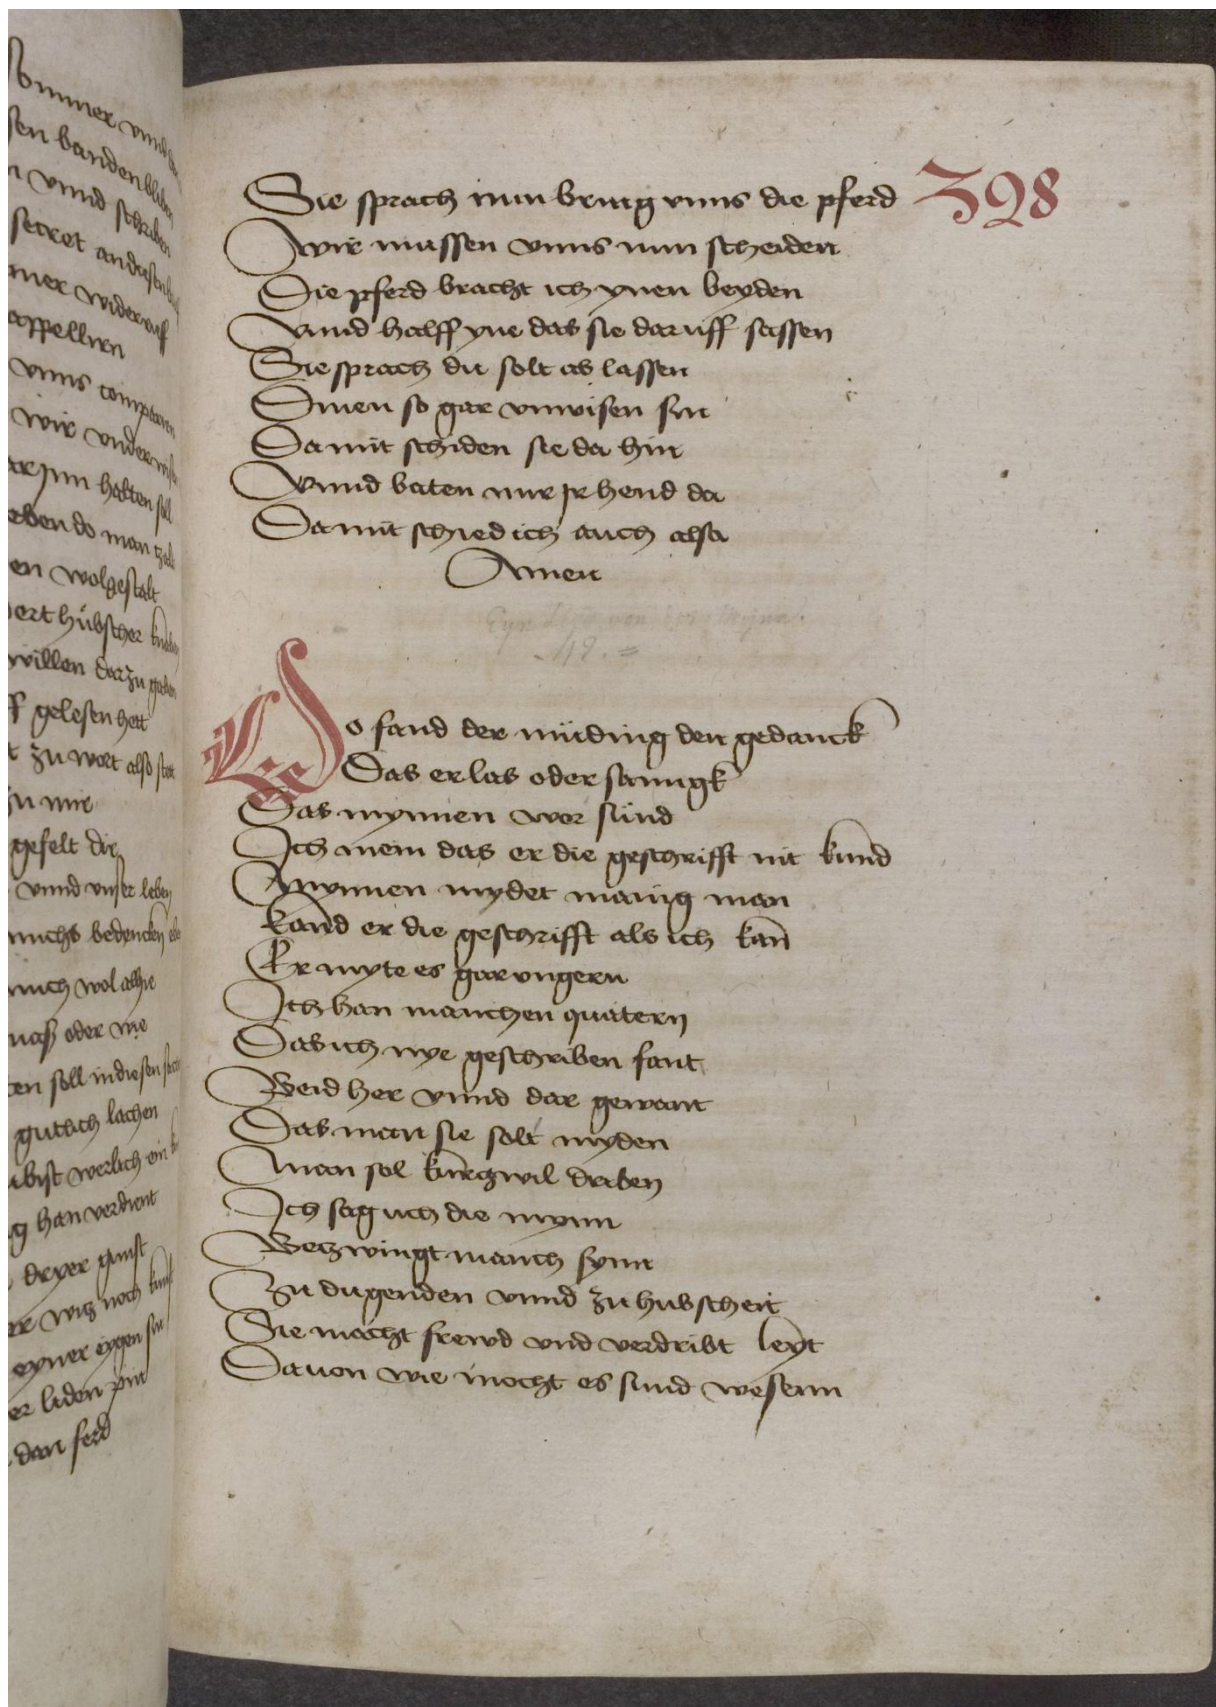 ommer vnnd
sen banden bliben
n vnnd schriben
secret an disem
mer widerruff
appellirn
vnns
wir vnderwisen
ar jnn halten sol
eben do man zalt
en wolgestalt
ert hübscher
willen dar zu geben
ff gelesen hett
t zu wort also stet
zu mir
gefelt dir
vnnd vnser leben
michs bedencken
mich wol alhie
was oder wie
ten soll in diesen
gutlich lachen
bist werlich ein
g han verdient
dryer gunst
er witz noch kunst
eyner eygen sin
er liden pin
dan ferd
Sie sprach nun bring vnns die pferd 398
Wir mussen vnns nun scheiden
Die pferd bracht ich ynen beyden
Vnnd halff yne das sie daruff sassen
Sie sprach du solt ab lassen
Dinen so gar vnwisen sin
Da mit schiden sie da hin
Vnnd baten mir jr hend da
Da mit schied ich auch also
Amen
Eyn von der mynne
48.
Wo fand der müding den gedanck
Das er las oder sanngk
Das mynnen wer sünd
Ich mein das er die geschrifft nit kund
Mynnen mydet manig man
Kand er die geschrifft als ich kan
Er myte es gar vngern
Ich han manchen quatern
Das ich nye geschriben fant
Beid her vnnd dar gewant
Das man sie solt myden
Man sol kurtzwil driben
Ich sag uch die mynn
Betzwingt manch synn
Zu dugenden vnnd zu hubscheit
Sie macht frewd vnd verdribt leyt
Da uon wie mocht es sund wesenn